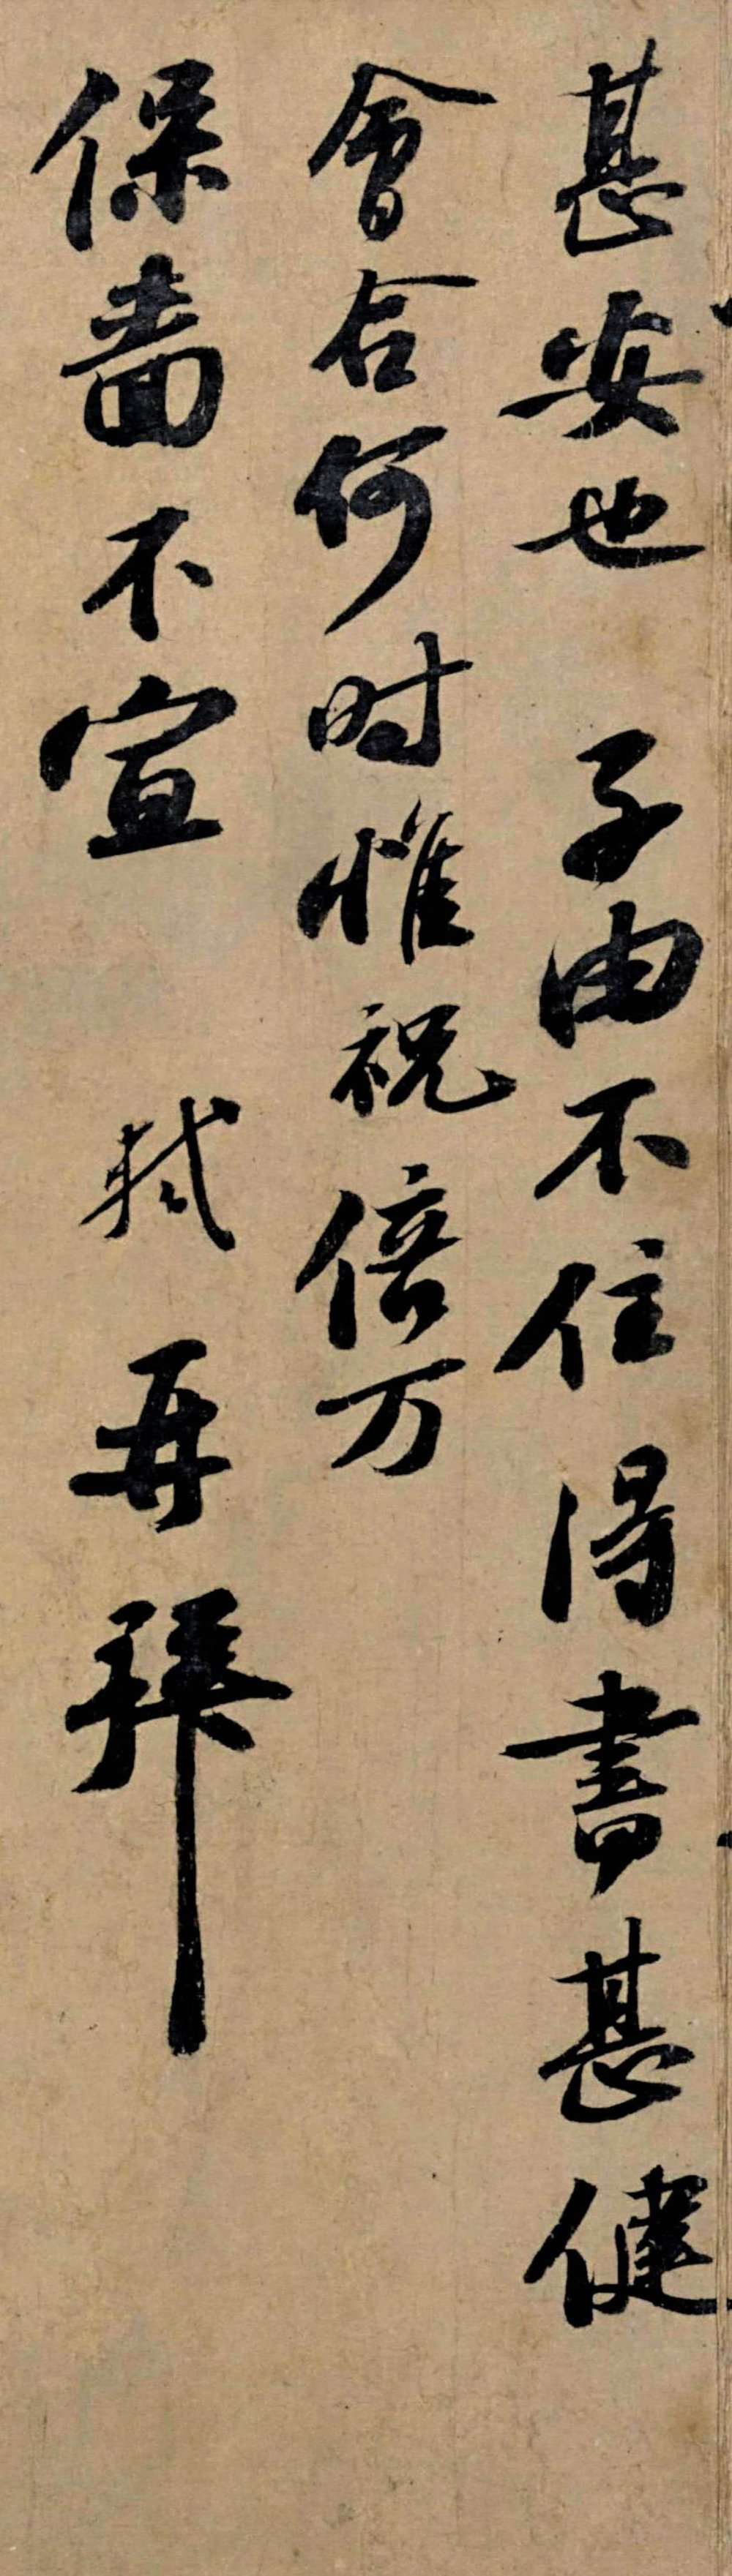 甚安也 子由不住得書甚健
會合何時惟祝倍万
保嗇不宣 軾再拜